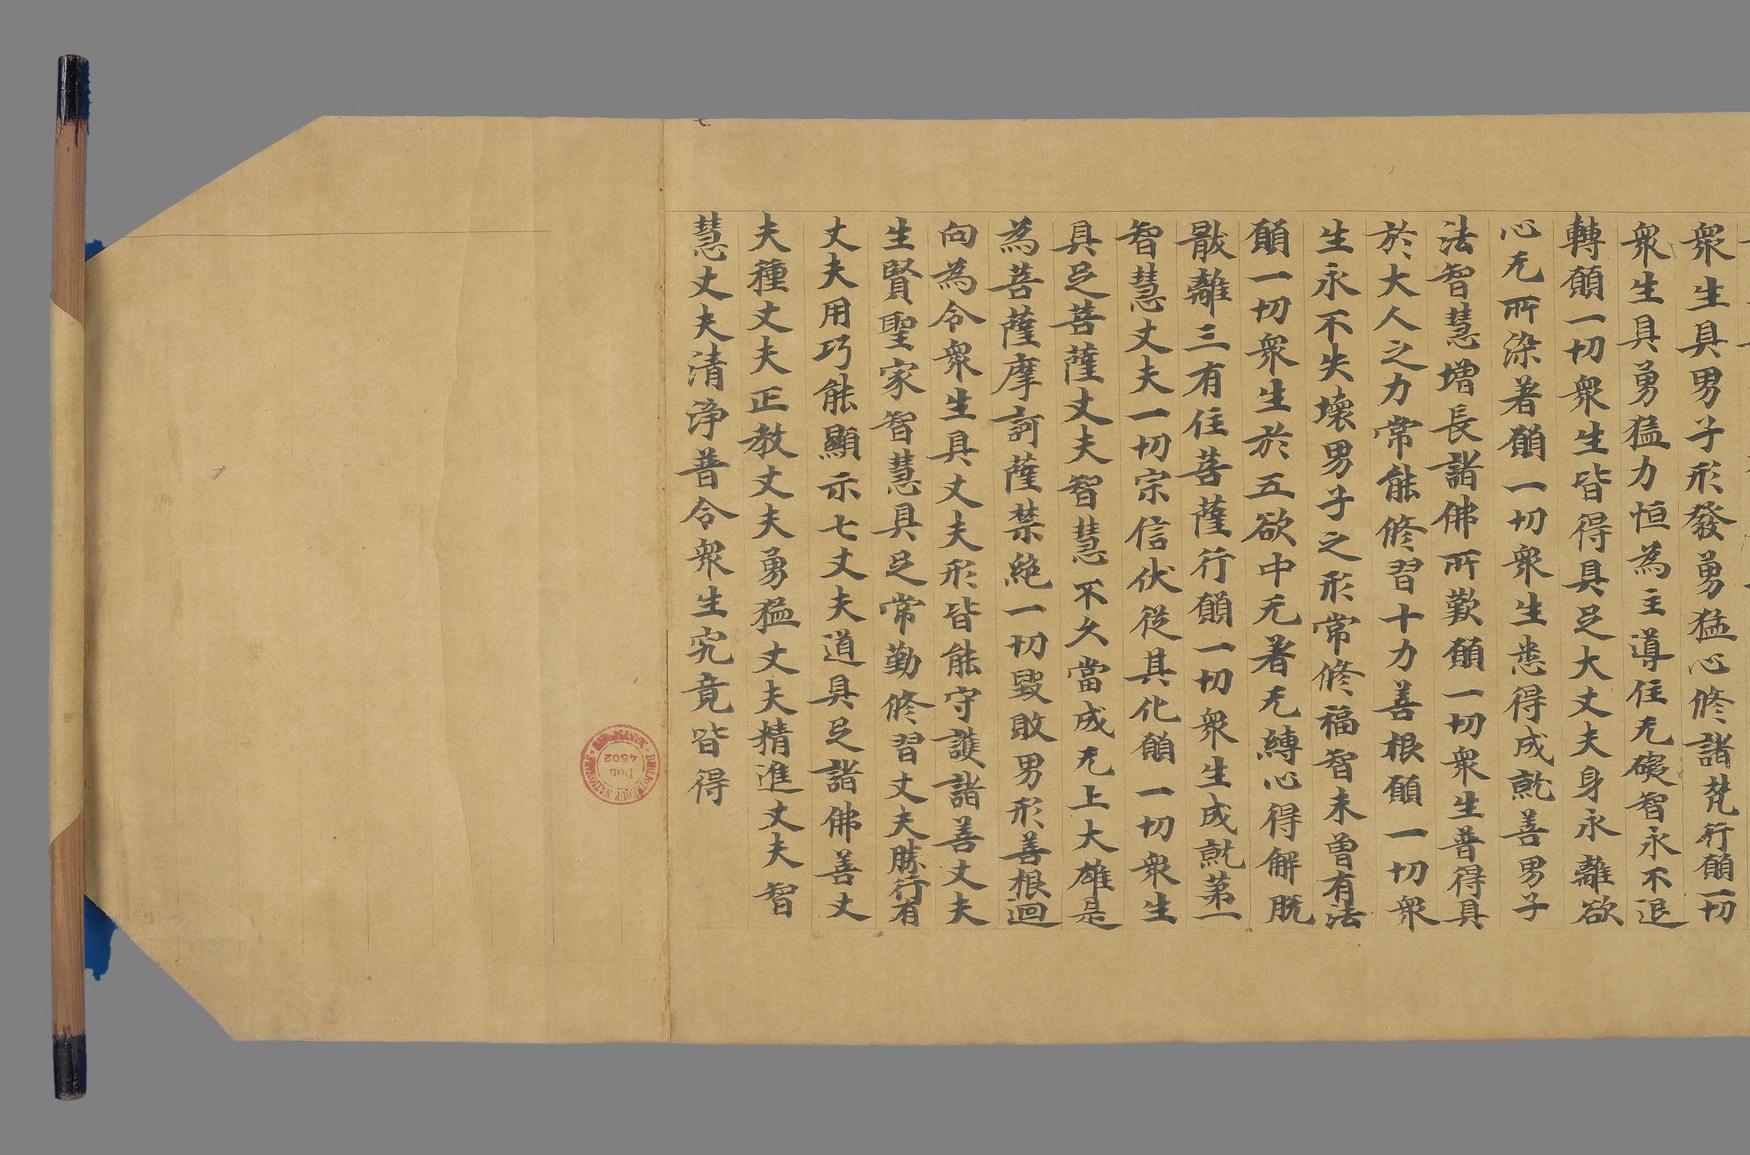 衆生具男子形發勇猛心修諸梵行願一切
衆生具勇猛力恒為主導住无礙智永不退
轉願一切衆生皆得具足大丈夫身永離欲
心无所染著願一切衆生悉得成就善男子
法智慧增長諸佛所歎願一切衆生普得具
於大人之力常能修習十力善根願一切衆
生永不失壞男子之形常修福智未曾有法
願一切衆生於五欲中无著无縛心得解脫
猒離三有住菩薩行願一切衆生成就第一
智慧丈夫一切宗信伏從其化願一切衆生
具足菩薩丈夫智慧不久當成无上大雄是
為菩薩摩訶薩禁絕一切毀敗男形善根迴
向為令衆生具丈夫形皆能守護諸善丈夫
生賢聖家智慧具足常勤修習丈夫勝行有
丈夫用巧能顯示七丈夫道具足諸佛善丈
夫種丈夫正教丈夫勇猛丈夫精進丈夫智
慧丈夫清淨普令衆生究竟皆得
BIBLIOTHÈQUE NATIONALE MANUSCRITS
Don
4502